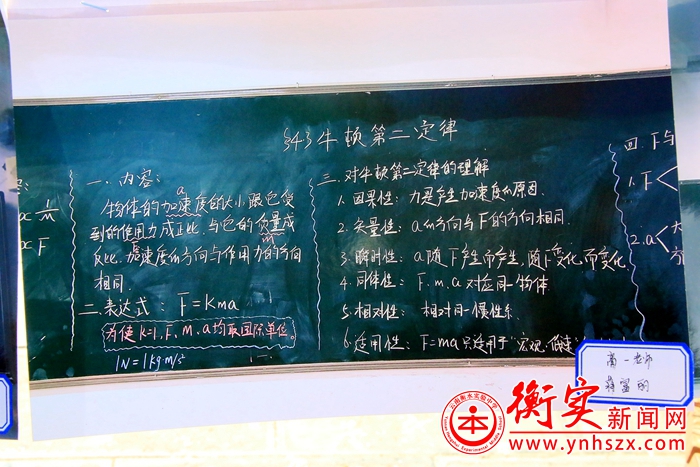 §4.3 牛顿第二定律
∝ 1/m
∝ F
一. 内容:
a
物体的加速度的大小跟它受
到的作用力成正比、与它的质量成
m
反比、加速度的方向与作用力的方向
相同.
二.表达式: F=kma
为使k=1,F、m、a均取国际单位。
1N=1kg·m/s²
三. 对牛顿第二定律的理解
1. 因果性: 力是产生加速度的原因.
2. 矢量性: a的方向与F的方向相同.
3. 瞬时性: a随F产生而产生,随F变化而变化
4. 同体性: F.m.a对应同一物体
5. 相对性: 相对同一惯性系
6. 适用性: F=ma只适用于"宏观、低速
四. F与
1. F<
2. a<
高一老师
云南衡水实验中学
本
衡实新闻网
www.ynhszx.com